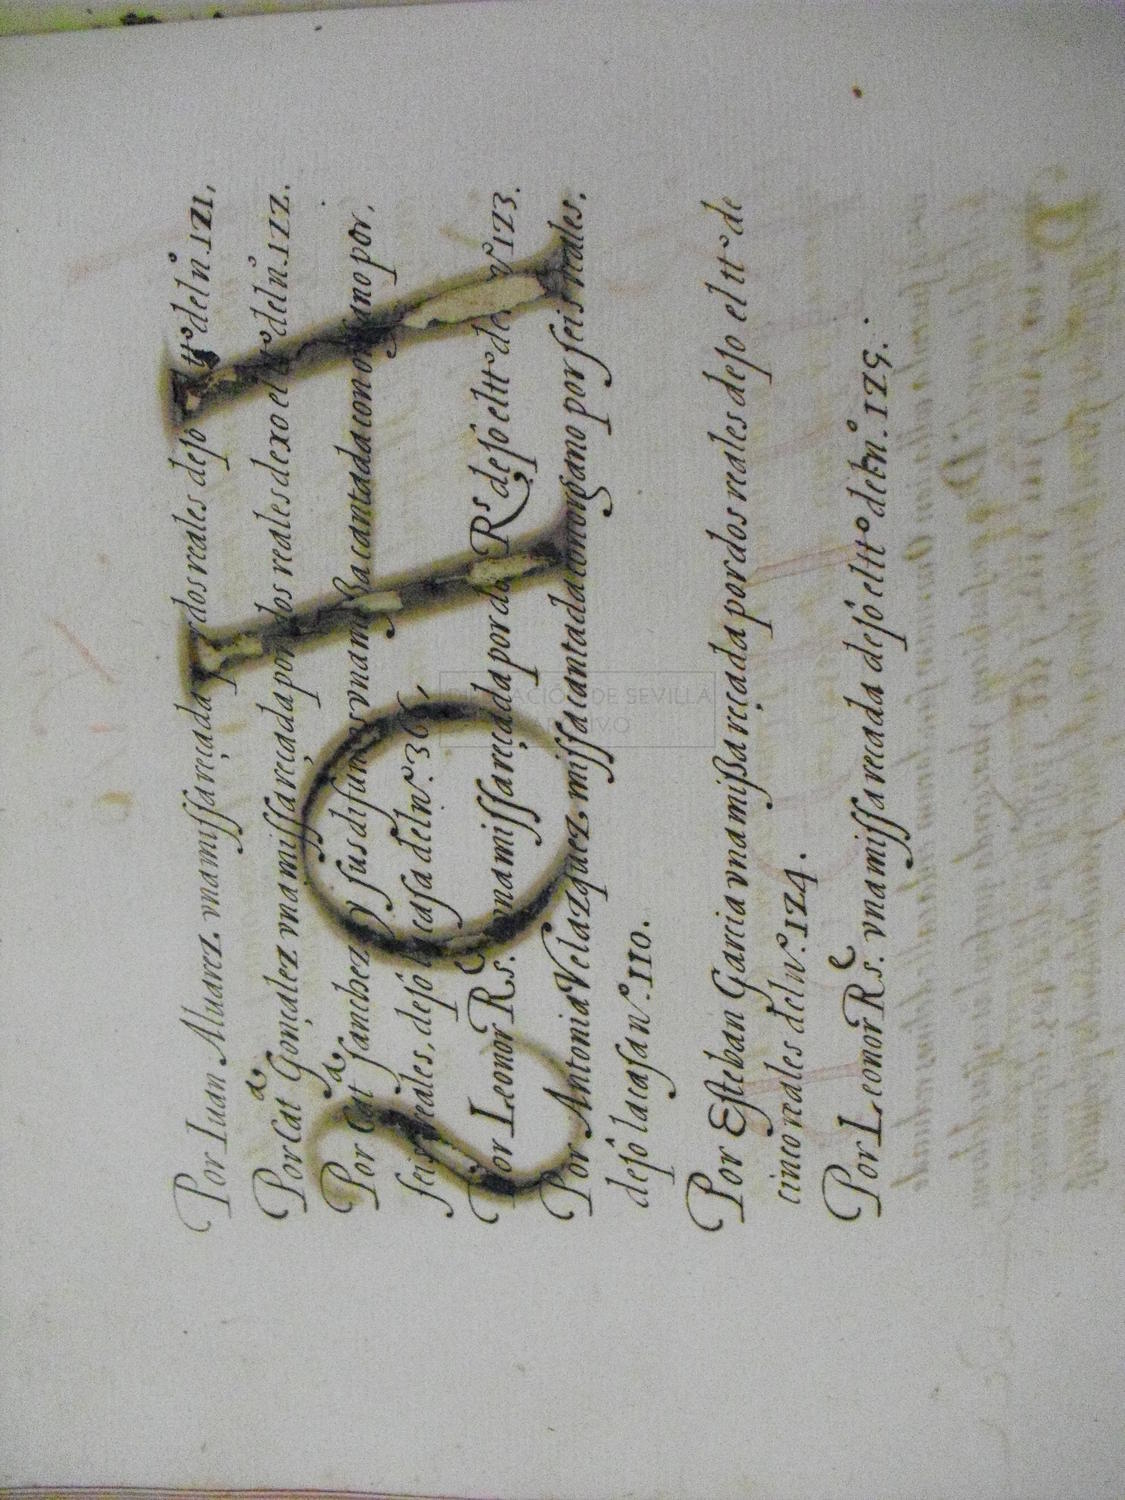 Por Iuan Aluarez. vna missa reçada dos reales desò tt.º del nº. 121.
Por Catª Gonçalez vna missa reçada por dos reales dexo el tt.º del nº. 122.
Por Catª sanchez y sus difuntos vna missa cantada con organo por.
seis reales, desò la casa del nº. 36,
Por Leonor Rs. vna missa reçada por dos Rs desò el tt.º de nº 123.
Por Antonia Velazquez, missa cantada con organo por seis reales.
desò la casa nº. 110.
Por Esteban Garcia vna missa reçada por dos reales deso el tt.º de
cinco reales del nº. 124.
Por Leonor Rs. vna missa recada desò el tt.º del nº. 125.
DIPUTACIÓN DE SEVILLA
ARCHIVO